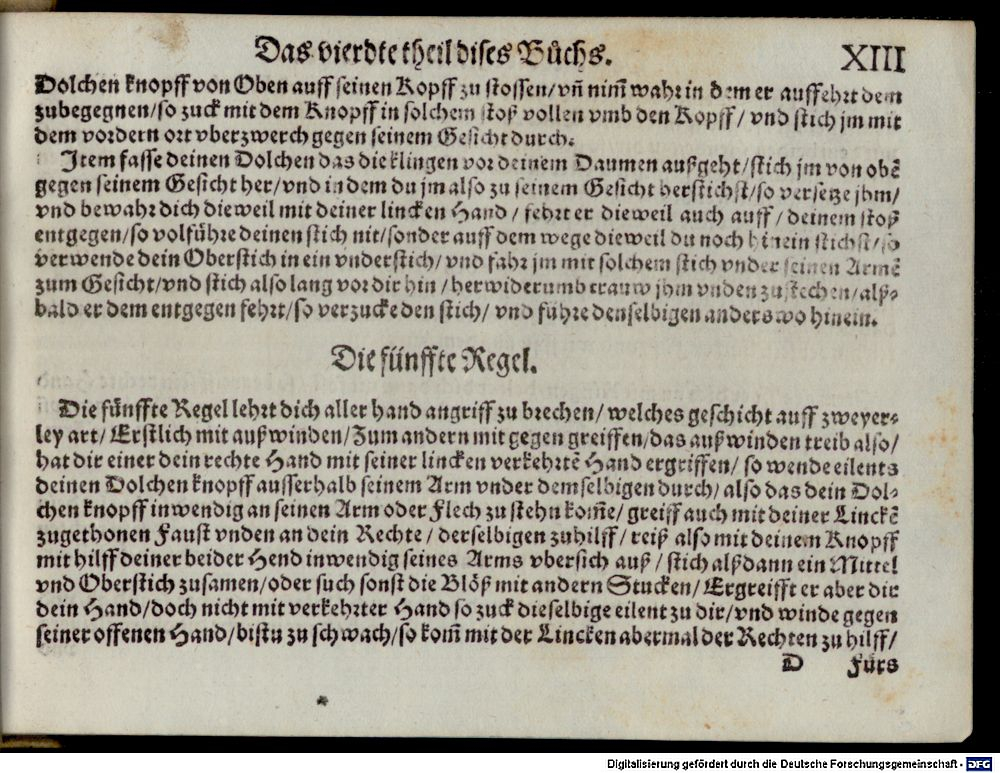 Das vierdte theil dises Bůchs. XIII
Dolchen knopff von Oben auff seinen Kopff zu stossen/ vñ nim̃ wahr in dem er auffehrt dem
zubegegnen/ so zuck mit dem Knopff in solchem stoß vollen vmb den Kopff/ vnd stich jm mit
dem vordern ort vberzwerch gegen seinem Gesicht durch.
Item fasse deinen Dolchen das die klingen vor deinem Daumen außgeht/ stich jm von obẽ
gegen seinem Gesicht her/ vnd in dem du jm also zu seinem Gesicht herstichst/ so versetze jhm/
vnd bewahr dich dieweil mit deiner lincken Hand/ fehrt er dieweil auch auff/ deinem stoß
entgegen/ so volführe deinen stich nit/ sonder auff dem wege dieweil du noch hinein stichst/ so
verwende dein Oberstich in ein vnderstich/ vnd fahr jm mit solchem stich vnder seinen Armẽ
zum Gesicht/ vnd stich also lang vor dir hin/ herwiderumb trauw jhm vnden zu stechen/ alß-
bald er dem entgegen fehrt/ so verzucke den stich/ vnd führe denselbigen anderswo hinein.
Die fünffte Regel.
Die fünffte Regel lehrt dich aller hand angriff zu brechen/ welches geschicht auff zweyer-
ley art/ Erstlich mit außwinden/ Zum andern mit gegen greiffen/ das außwinden treib also/
hat dir einer dein rechte Hand mit seiner lincken verkehrtẽ Hand ergriffen/ so wende eilents
deinen Dolchen knopff ausserhalb seinem Arm vnder demselbigen durch/ also das dein Dol-
chen knopff inwendig an seinen Arm oder Flech zu stehn kom̃e/ greiff auch mit deiner Linckẽ
zugethonen Faust vnden an dein Rechte/ derselbigen zuhilff/ reiß also mit deinem Knopff
mit hilff deiner beider Hend inwendig seines Arms vbersich auß/ stich alßdann ein Mittel
vnd Oberstich zusamen/ oder such sonst die Blöß mit andern Stucken/ Ergreifft er aber dir
dein Hand/ doch nicht mit verkehrter Hand so zuck dieselbige eilent zu dir/ vnd winde gegen
seiner offenen Hand/ bistu zu schwach/ so kom̃ mit der Lincken abermal der Rechten zu hilff/
D fürs
Digitalisierung gefördert durch die Deutsche Forschungsgemeinschaft - DFG